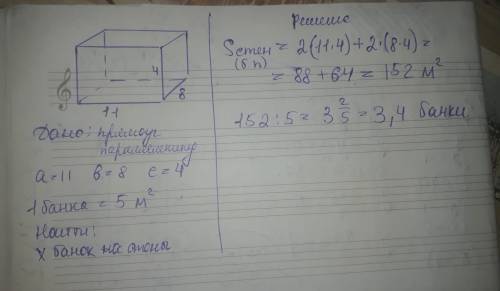 4
8
11
Дано: прямоуг
параллепипед
a=11 b=8 c=4
1 банка = 5 м²
Найти:
x банок на стены
Решение
Sстен = 2(11·4)+2·(8·4)=
(бп)
= 88+64 = 152 м²
152:5 = 3 2/5 = 3,4 банки